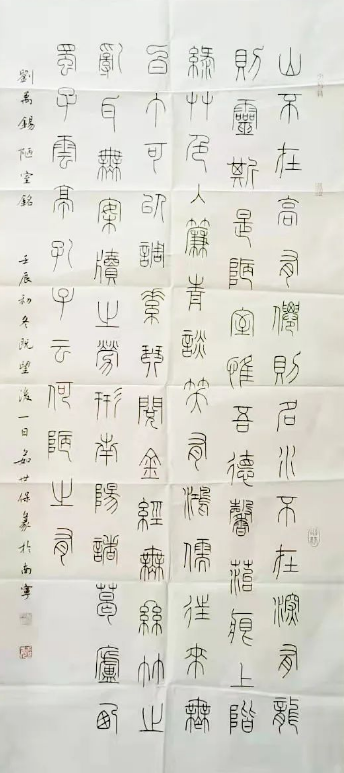 山不在高有僊則名水不在深有龍
則靈斯是陋室惟吾德馨苔痕上階
綠艸色入簾青談笑有鴻儒往來無
白丁可以調素琴閱金經無絲竹之
亂耳無案牘之勞形南陽諸葛廬西
蜀子雲亭孔子云何陋之有
劉禹錫陋室銘 壬辰初冬既望後一日世保篆於南寧